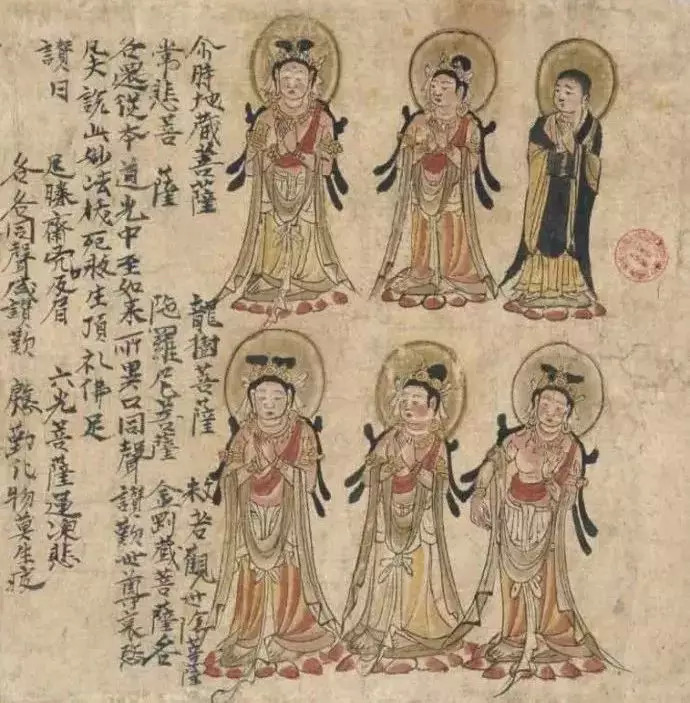 尒時地藏菩薩 龍樹菩薩 救苦觀世音菩薩
常悲菩薩 陁羅尼菩薩 金剛藏菩薩各
各還從本道光中至如来所異口同聲讃歎世尊哀愍
凡夫說此妙法拔死救生頂礼佛足
讃曰
足膝齊胷口及眉 六光菩薩運深悲
各各同聲咸讃歎 慇勤化物莫生疲